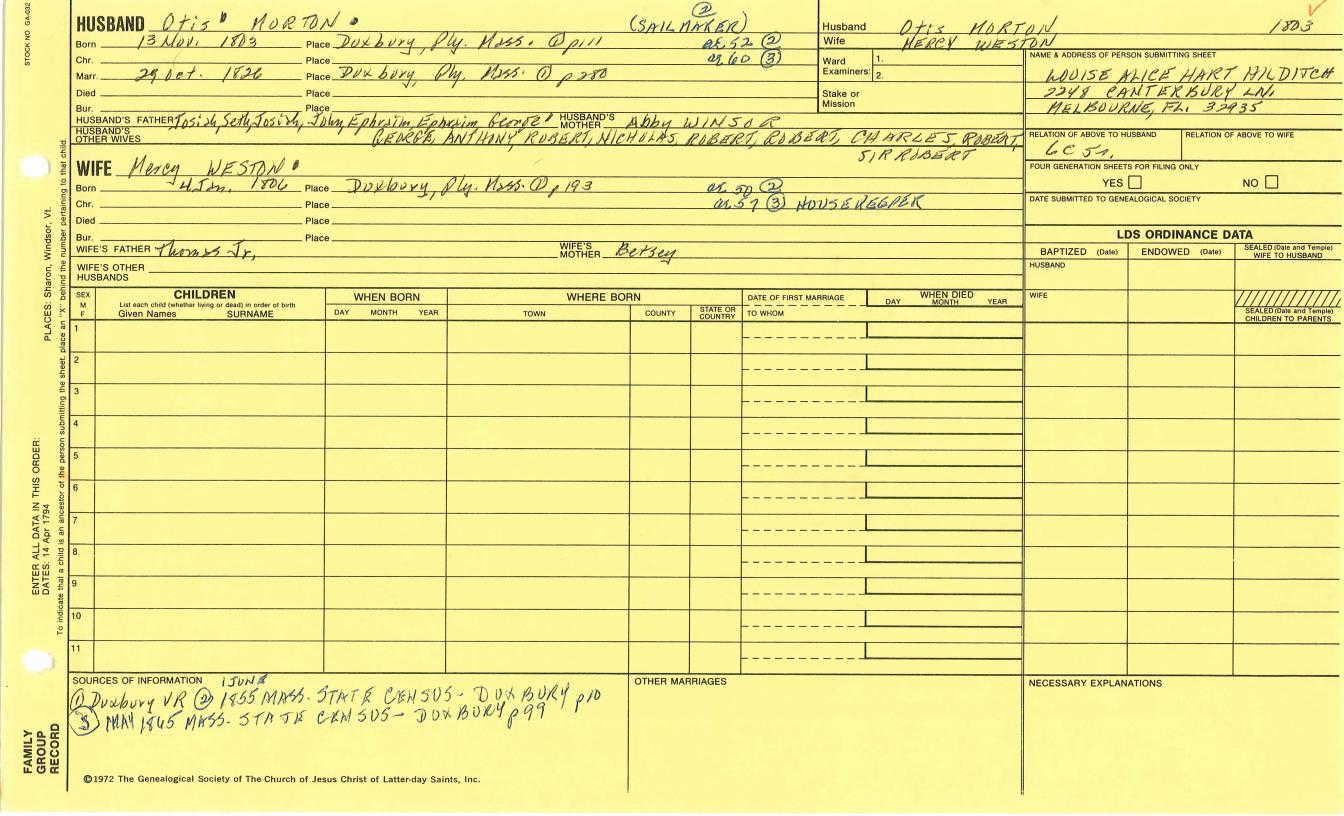 STOCK NO. GA-602
HUSBAND Otis MORTON (SAILMAKER) ②
Born 13 Nov. 1803 Place Duxbury, Ply. Mass. ① p111 ae. 52 ②
Chr. Place ae 60 ③
Marr. 29 Oct. 1826 Place Duxbury, Ply. Mass. ① p 280
Died Place
Bur. Place
HUSBAND'S FATHER Josiah, Seth, Josiah, John, Ephraim, Ephraim, George HUSBAND'S MOTHER Abby WINSOR
HUSBAND'S OTHER WIVES GEORGE, ANTHONY, ROBERT, NICHOLAS, ROBERT, ROBERT, CHARLES, ROBERT,
SIR ROBERT
WIFE Mercy WESTON
Born 4 Jan. 1806 Place Duxbury, Ply. Mass. ① p 193 ae. 50 ②
Chr. Place ae 57 ③ HOUSEKEEPER
Died Place
Bur. Place
WIFE'S FATHER Thomas Jr. WIFE'S MOTHER Betsey
WIFE'S OTHER HUSBANDS
Husband Otis MORTON 1803
Wife MERCY WESTON
Ward Examiners: 1.
2.
Stake or Mission
NAME & ADDRESS OF PERSON SUBMITTING SHEET
LOUISE ALICE HART HILDITCH
2248 CANTERBURY LN.
MELBOURNE, FL. 32935
RELATION OF ABOVE TO HUSBAND RELATION OF ABOVE TO WIFE
6C 5r.
FOUR GENERATION SHEETS FOR FILING ONLY
YES NO
DATE SUBMITTED TO GENEALOGICAL SOCIETY
LDS ORDINANCE DATA
BAPTIZED (Date) ENDOWED (Date) SEALED (Date and Temple) WIFE TO HUSBAND
HUSBAND
WIFE
SEALED (Date and Temple) CHILDREN TO PARENTS
SEX M F
CHILDREN
List each child (whether living or dead) in order of birth
Given Names SURNAME
WHEN BORN
DAY MONTH YEAR
WHERE BORN
TOWN COUNTY STATE OR COUNTRY
DATE OF FIRST MARRIAGE
TO WHOM
WHEN DIED
DAY MONTH YEAR
1
2
3
4
5
6
7
8
9
10
11
SOURCES OF INFORMATION 1 JUNE
① Duxbury VR ② 1855 MASS. STATE CENSUS - DUXBURY p10
③ MAY 1865 MASS. STATE CENSUS - DUXBURY p 99
OTHER MARRIAGES
NECESSARY EXPLANATIONS
©1972 The Genealogical Society of The Church of Jesus Christ of Latter-day Saints, Inc.
FAMILY GROUP RECORD
ENTER ALL DATA IN THIS ORDER:
DATES: 14 Apr 1794
PLACES: Sharon, Windsor, Vt.
To indicate that a child is an ancestor of the person submitting the sheet, place an "X" behind the number pertaining to that child.